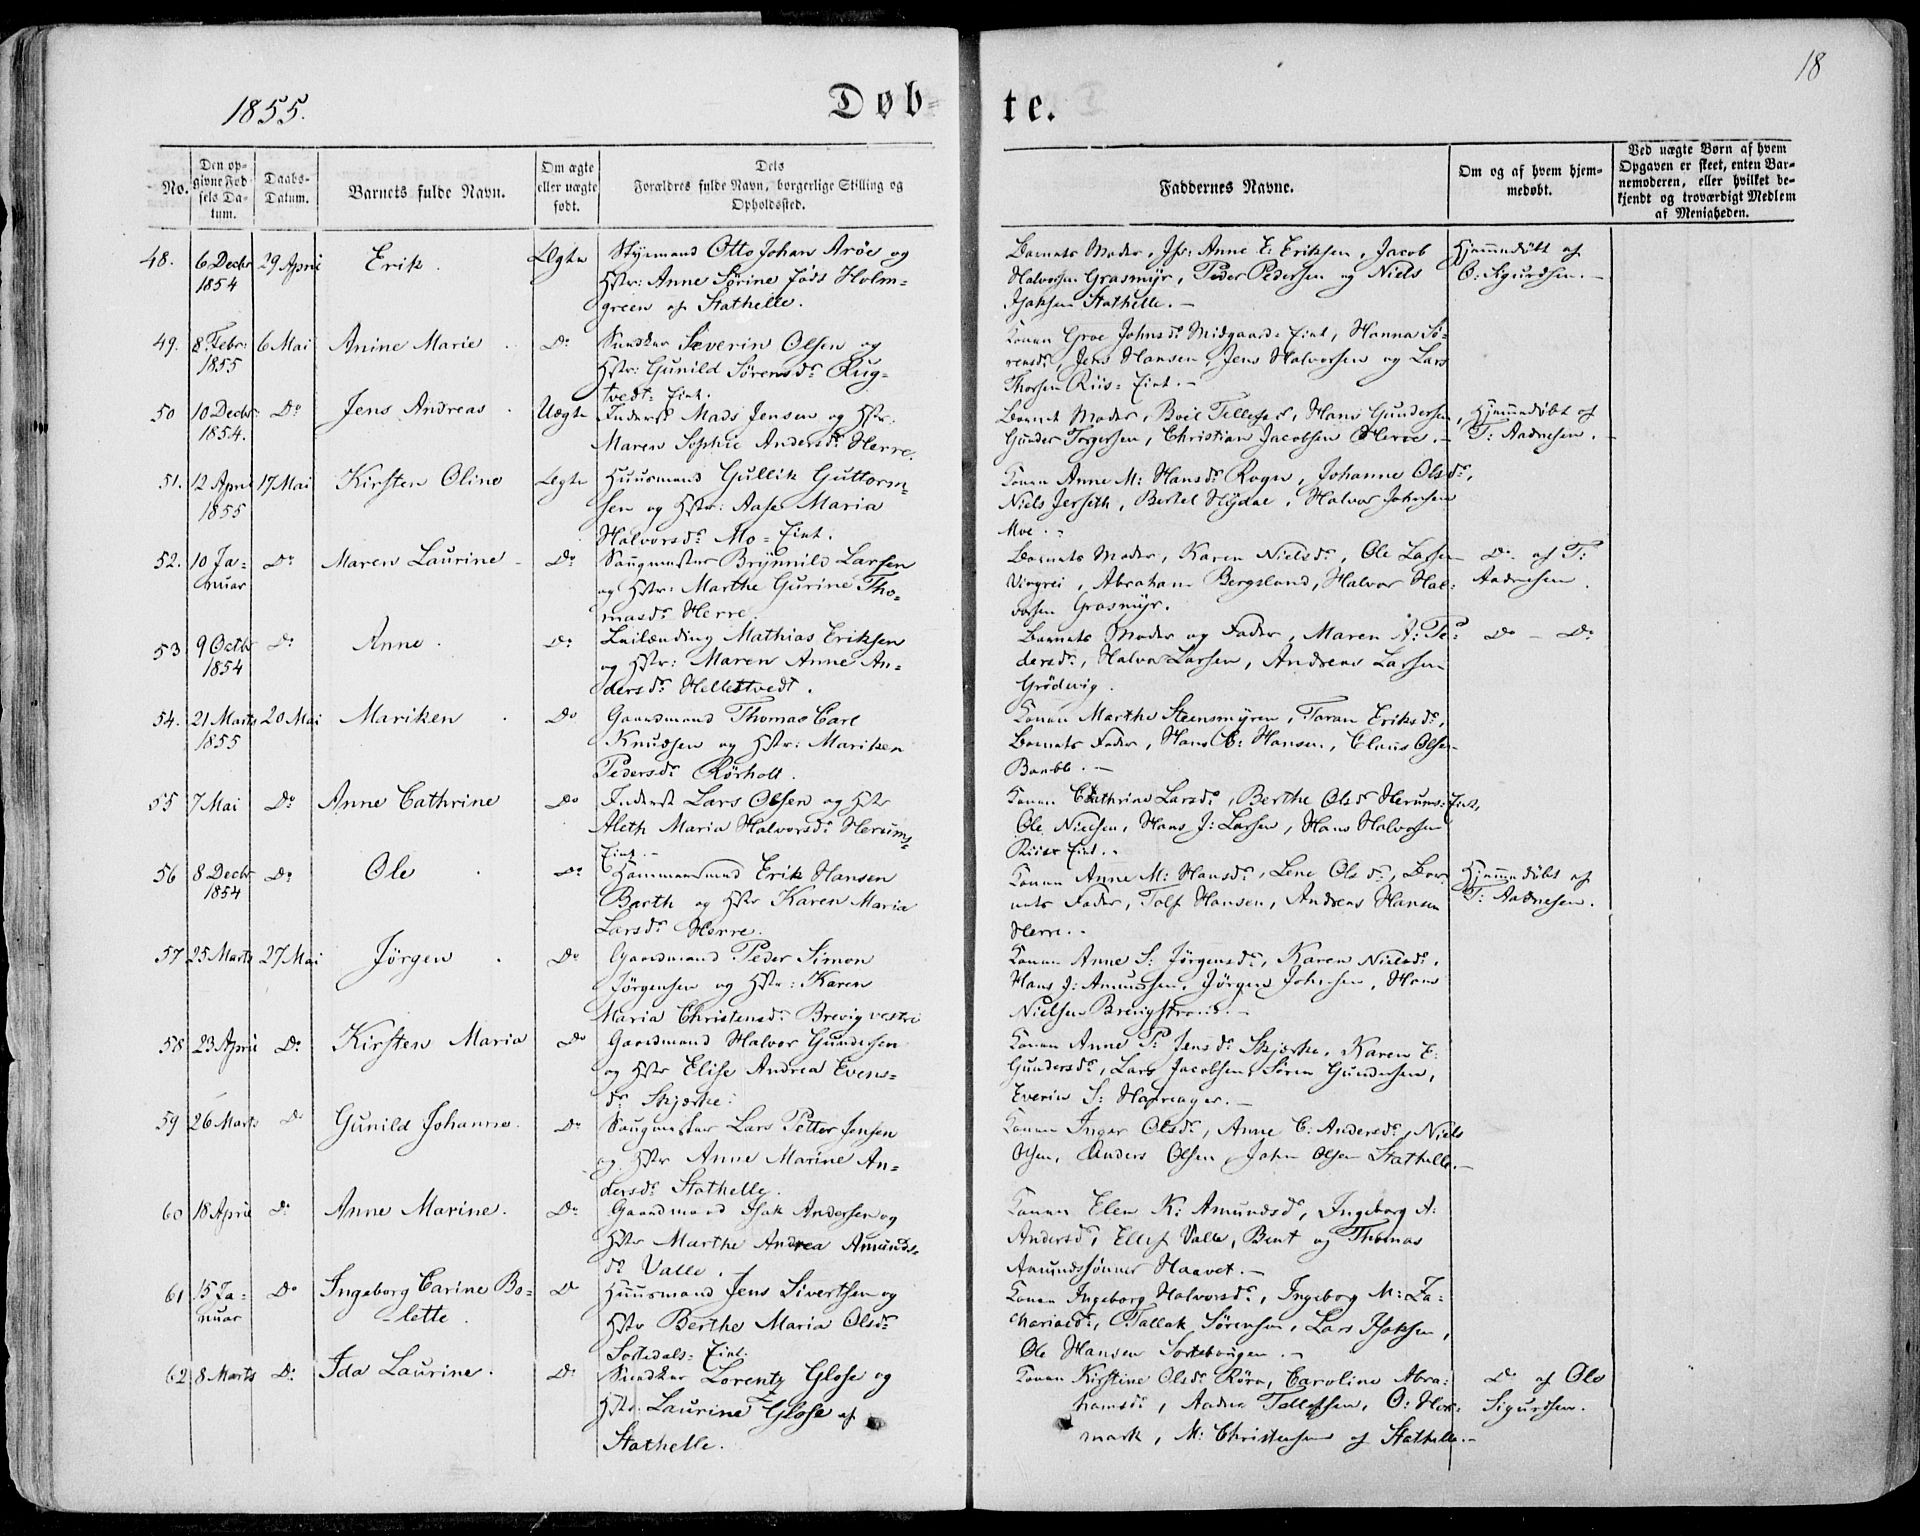 18
1855.
Døb=
te.
No.
Den op-
givne Fød-
sels Da-
tum.
Daabs-
Datum.
Barnets fulde Navn.
Om ægte
eller uægte
født.
Dets
Forældres fulde Navn, borgerlige Stilling og
Opholdssted.
Faddernes Navne.
Om og af hvem hjem-
medøbt.
Ved uægte Børn af hvem
Opgaven er skeet, enten Bar-
nemoderen, eller hvilket be-
kjendt og troværdigt Medlem
af Menigheden.
48. 6 Decbr 1854 29 April Erik. Ægte
Styrmand Otto Johan Arøe og
Hstr: Anne Sørine født Holm-
green af Stathelle.
Barnets Moder, Anne E: Eriksen, Jacob
Halvorsen Grasmyr, Peder Pedersen og Niels
Isaksen Stathelle. -
Hjemmedøbt af
O: Sigurdsen. -
49. 8 Febr: 1855 6 Mai Anine Marie Do
Severin Olsen og
Hstr: Gunild Sørensdr Rug-
tvedt= Eint.
Konen Groe Johnsdr Midgaards Eint, Hanna Sø-
rensdr, Jens Hansen, Jens Halvorsen og Lars
Thorsen Riis= Eint. -
50 10 Decbr. 1854. Do Jens Andreas. Uægte
Inderst Mads Jensen og Hstr.
Maren Sophie Andersdr Herre.
Barnets Moder, Boil Tellefsdr, Hans Gundersen,
Gunder Torgersen, Christian Jacobsen Herre. -
Hjemmedøbt af
T: Aadnesen. -
51. 12 April 1855 17 Mai Kirsten Oline Ægte
Huusmand Gullik Guttorm-
sen og Hstr: Aase Maria
Halvorsdr Mo= Eint.
Konen Anne M: Hansdr Rogn, Johanne Olsdr,
Niels Jerseth, Bertel Nydal, Halvor Johnsen
Moe. -
52. 10 Ja-
nuar Do Maren Laurine - Do
Saugmester Brynnild Larsen
og Hstr: Marthe Gurine Tho-
masdr Herre.
Barnets Moder, Karen Nielsdr, Ole Larsen
Abraham Bergsland, Halvor Hal-
vorsen Grasmyr.
Do af T:
Aadnesen.
53 9 Octbr 1854 Do Anne. Do
Leilænding Mathias Eriksen
og Hstr: Maren Anne An-
dersdr Hellestvedt.
Barnets Moder og Fader, Maren A: Pe-
dersdr, Halvor Larsen, Andreas Larsen
Grødvig.
Do - Do
54. 21 Marts 1855 20 Mai Mariken. Do
Gaardmand Thomas Carl
Knudsen og Hstr: Mariken
Pedersdr Rörholt.
Konen Marthe Steensmyren, Taran Eriksdr,
Barnets Fader, Hans C: Hansen, Claus Olsen
Bamble. -
55 7 Mai Do Anne Cathrine Do
Inderst Lars Olsen og Hstr
Aleth Maria Halvorsdr Herums-
Eint. -
Konen Cathrine Larsdr, Berthe Olsdr Herums= Eint,
Ole Nielsen, Hans J: Larsen, Hans Halvorsen
Riis= Eint. -
56 8 Decbr 1854 Do Ole. Do
Hammersmed Erik Hansen
Barth og Hstr Karen Maria
Larsdr Herre.
Konen Anne M: Hansdr, Lene Olsdr, Bar-
nets Fader, Tolf Hansen, Andreas Hansen
Herre. -
Hjemmedøbt af
T: Aadnesen.
57 25 Marts 27 Mai Jörgen. Do
Gaardmand Peder Simon
Jörgensen og Hstr: Karen
Maria Christensdr Brevig vestre
Konen Anne S: Jörgensdr, Karen Nielsdr.
Hans J: Amundsen, Jörgen Johnsen, Hans
Nielsen Brevigstrand. -
58 23 April Do Kirsten Maria Do
Gaardmand Halvor Gundersen
og Hstr Elise Andrea Evens-
dr Skjerke:
Konen Anne P: Jensdr Skjerke, Karen E:
Gundersdr, Lars Jacobsen, Søren Gundersen,
Everin S: -
59 26 Marts Do Gunild Johanne. Do
Saugmester Lars Petter Jensen
og Hstr Anne Marine An-
dersdr Stathelle.
Konen Inger Olsdr, Anne C: Andersdr, Niels
Olsen, Anders Olsen, John Olsen Stathelle. -
60 18 April Do Anne Marine. Do
Gaardmand Isak Andersen og
Hstr Marthe Andrea Amunds-
dr Valle.
Konen Elen K: Amundsdr, Ingeborg A:
Andersdr, Ellef Valle, Bent og Thomas
Amundssønner Haavet. -
61 15 Ja-
nuar Do Ingeborg Carine Bo-
-lette. Do
Huusmand Jens Sivertsen og
Hstr Berthe Maria Olsdr
Sortedals= Eint.
Konen Ingeborg Halvorsdr, Ingeborg M: Za-
chariasdr, Tallak Sørensen, Lars Isaksen,
Ole Hansen Sortebougen. -
62 8 Marts Do Ida Laurine. Do
Lorentz Glose og
Hstr: Laurine Glose af
Stathelle.
Konen Kirstine Olsdr Röra, Caroline Abra-
hamsdr, Aadne Tellefsen, O: Hok-
mark, M: Christensen af Stathelle. -
Do af Ole
Sigurdsen.